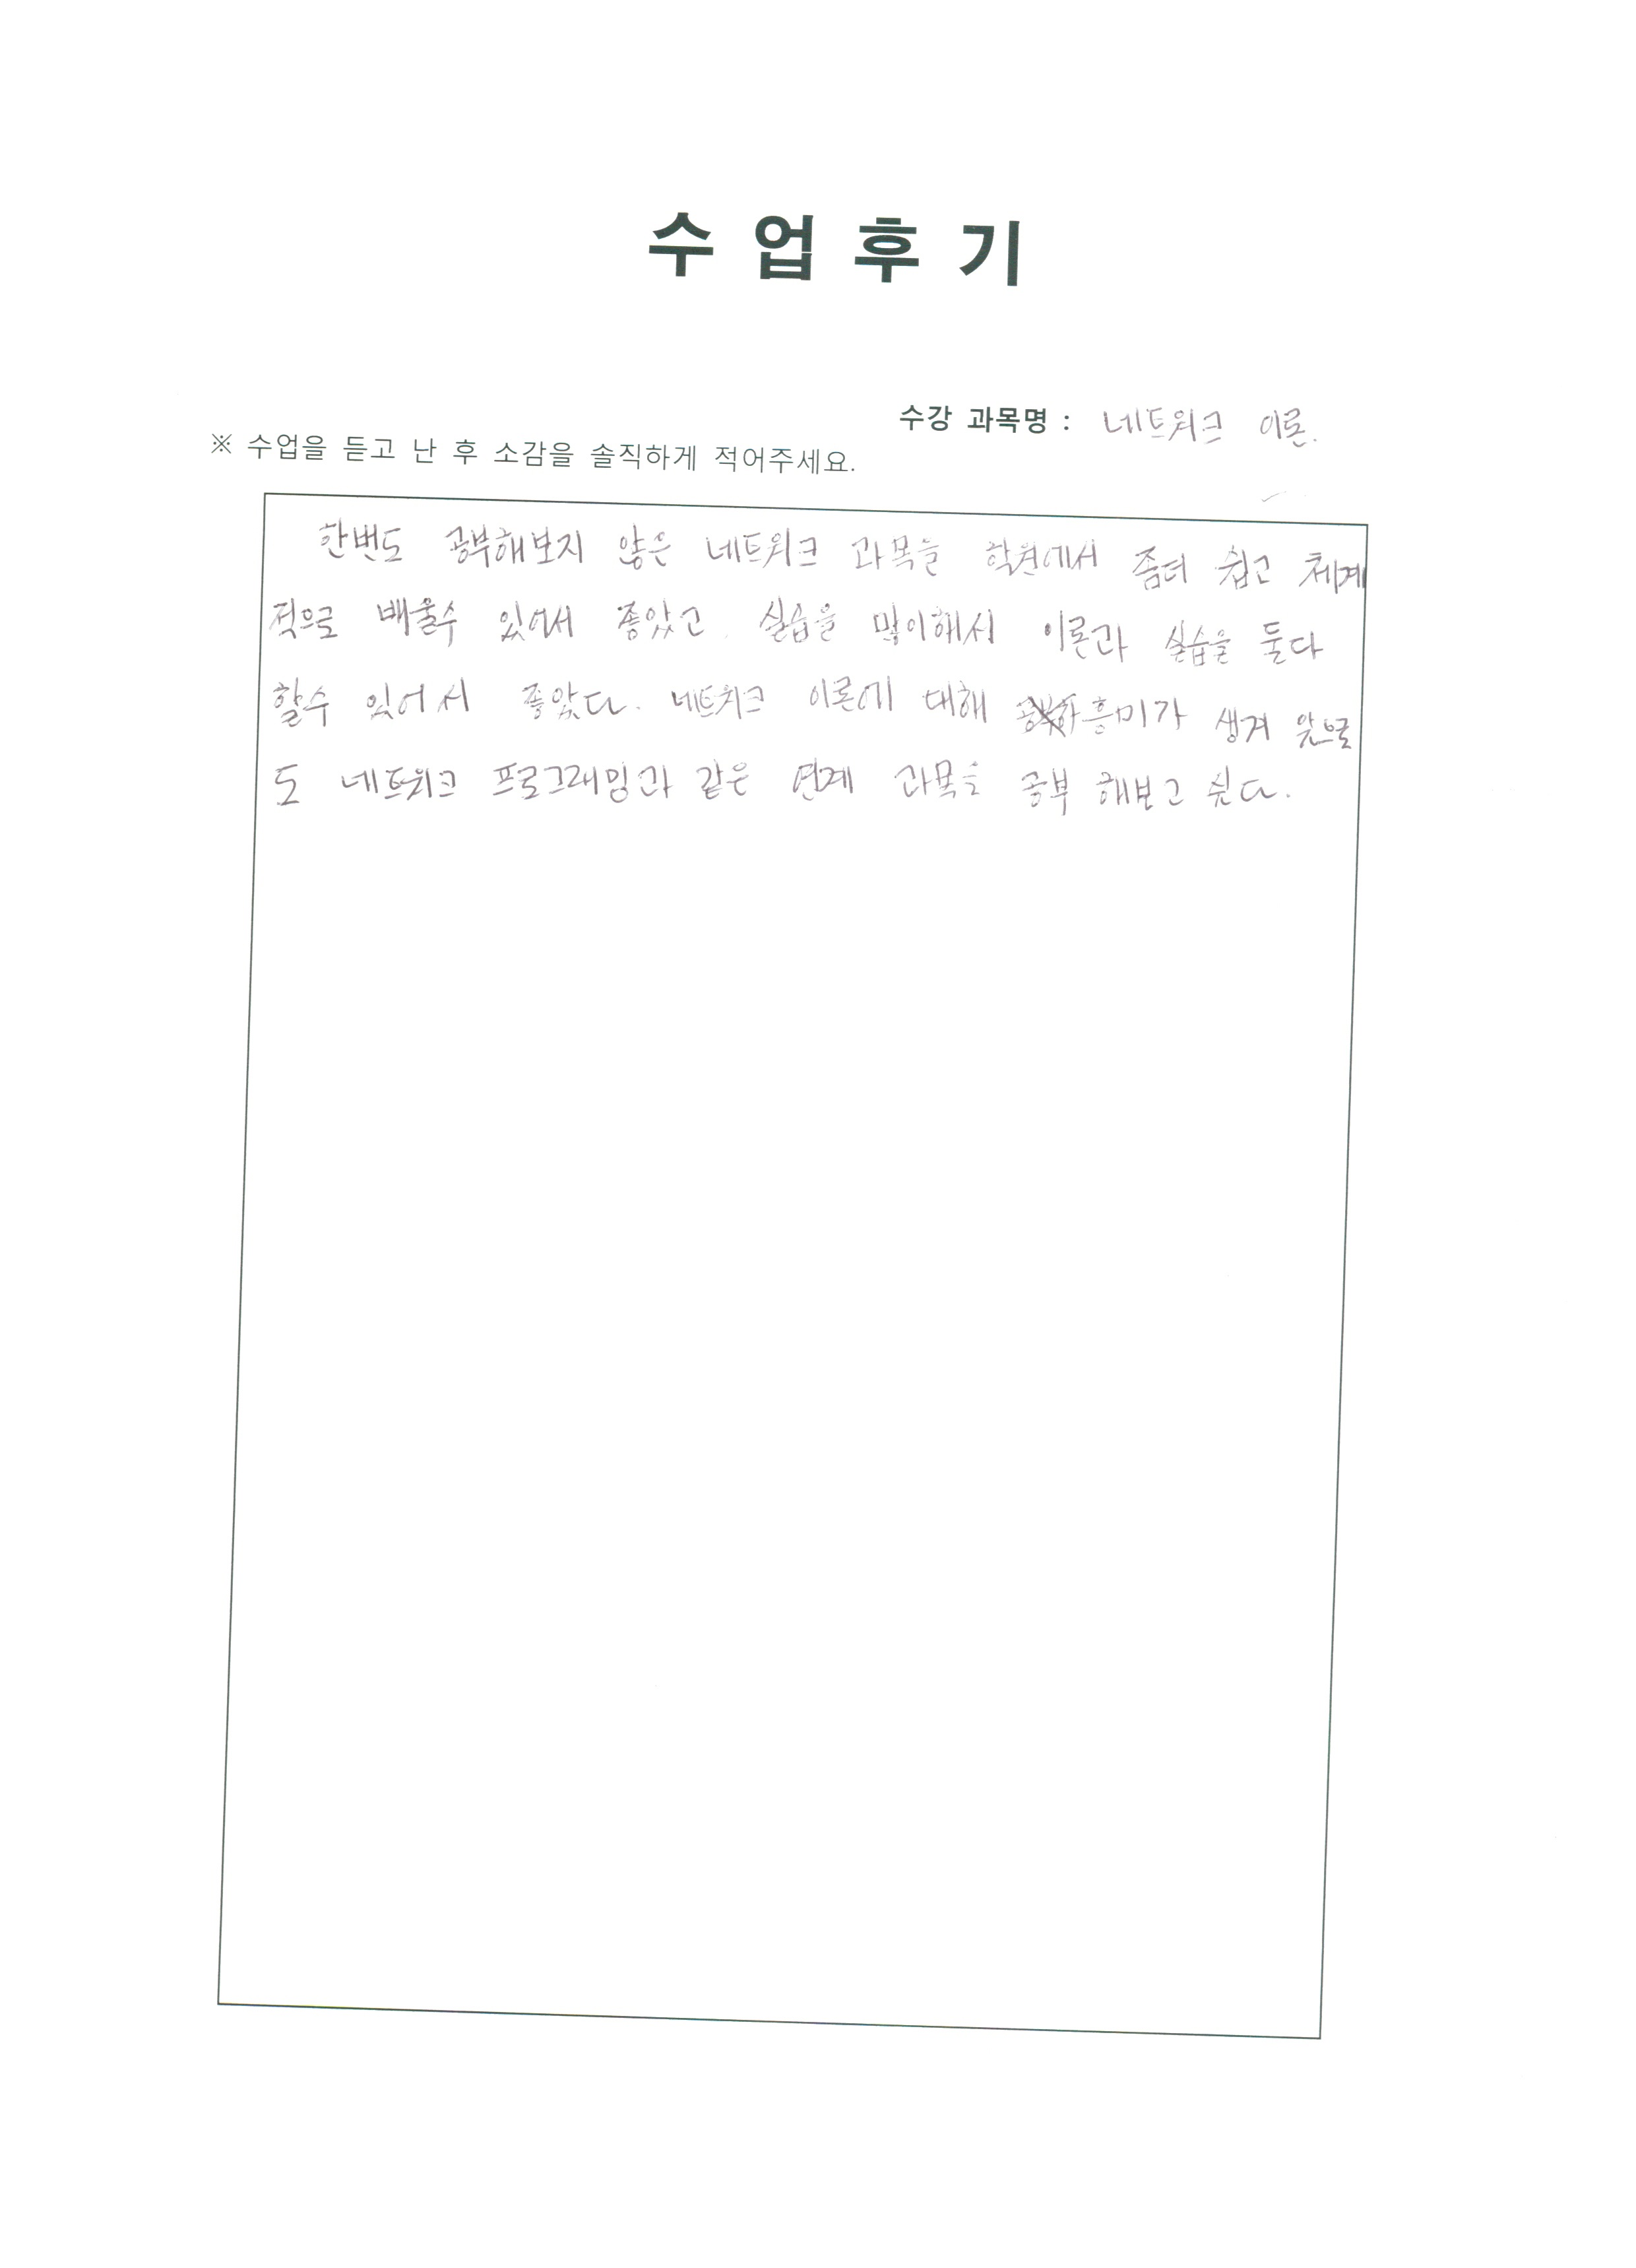 수 업 후 기
수강 과목명 : 네트워크 이론.
※ 수업을 듣고 난 후 소감을 솔직하게 적어주세요.
한번도 공부해보지 않은 네트워크 과목을 학원에서 좀더 쉽고 체계
적으로 배울수 있어서 좋았고 실습을 많이해서 이론과 실습을 둘다
할수 있어서 좋았다. 네트워크 이론에 대해 흥미가 생겨 앞으로
도 네트워크 프로그래밍과 같은 연계 과목을 공부 해보고 싶다.